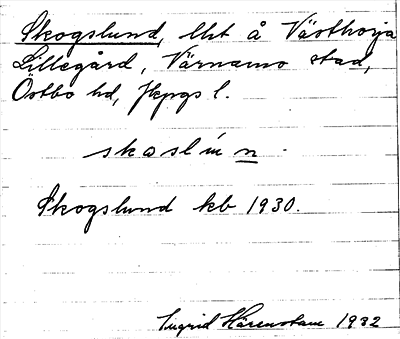 Skogslund, lht å Västhorja
Lillegård, Värnamo stad,
Östbo hd, Jkpgs l.
skɷslún.
Skogslund kb 1930.
Ingrid Härenstam 1932